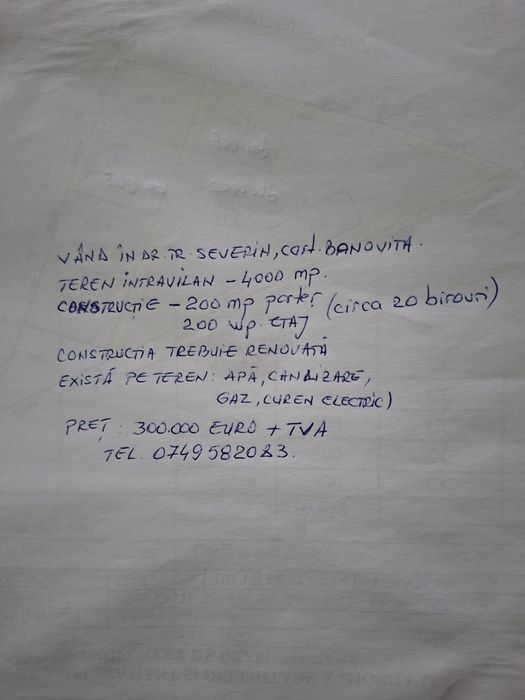 VÂND ÎN DR. TR. SEVERIN, cart. BANOVITA.
TEREN INTRAVILAN - 4000 mp.
CONSTRUCȚIE - 200 mp parter (circa 20 birouri)
200 mp. ETAJ
CONSTRUCTIA TREBUIE RENOVATĂ
EXISTĂ PE TEREN: APĂ, CANALIZARE,
GAZ, CUREN ELECTRIC)
PREȚ: 300.000 EURO + TVA
TEL. 0749582083.